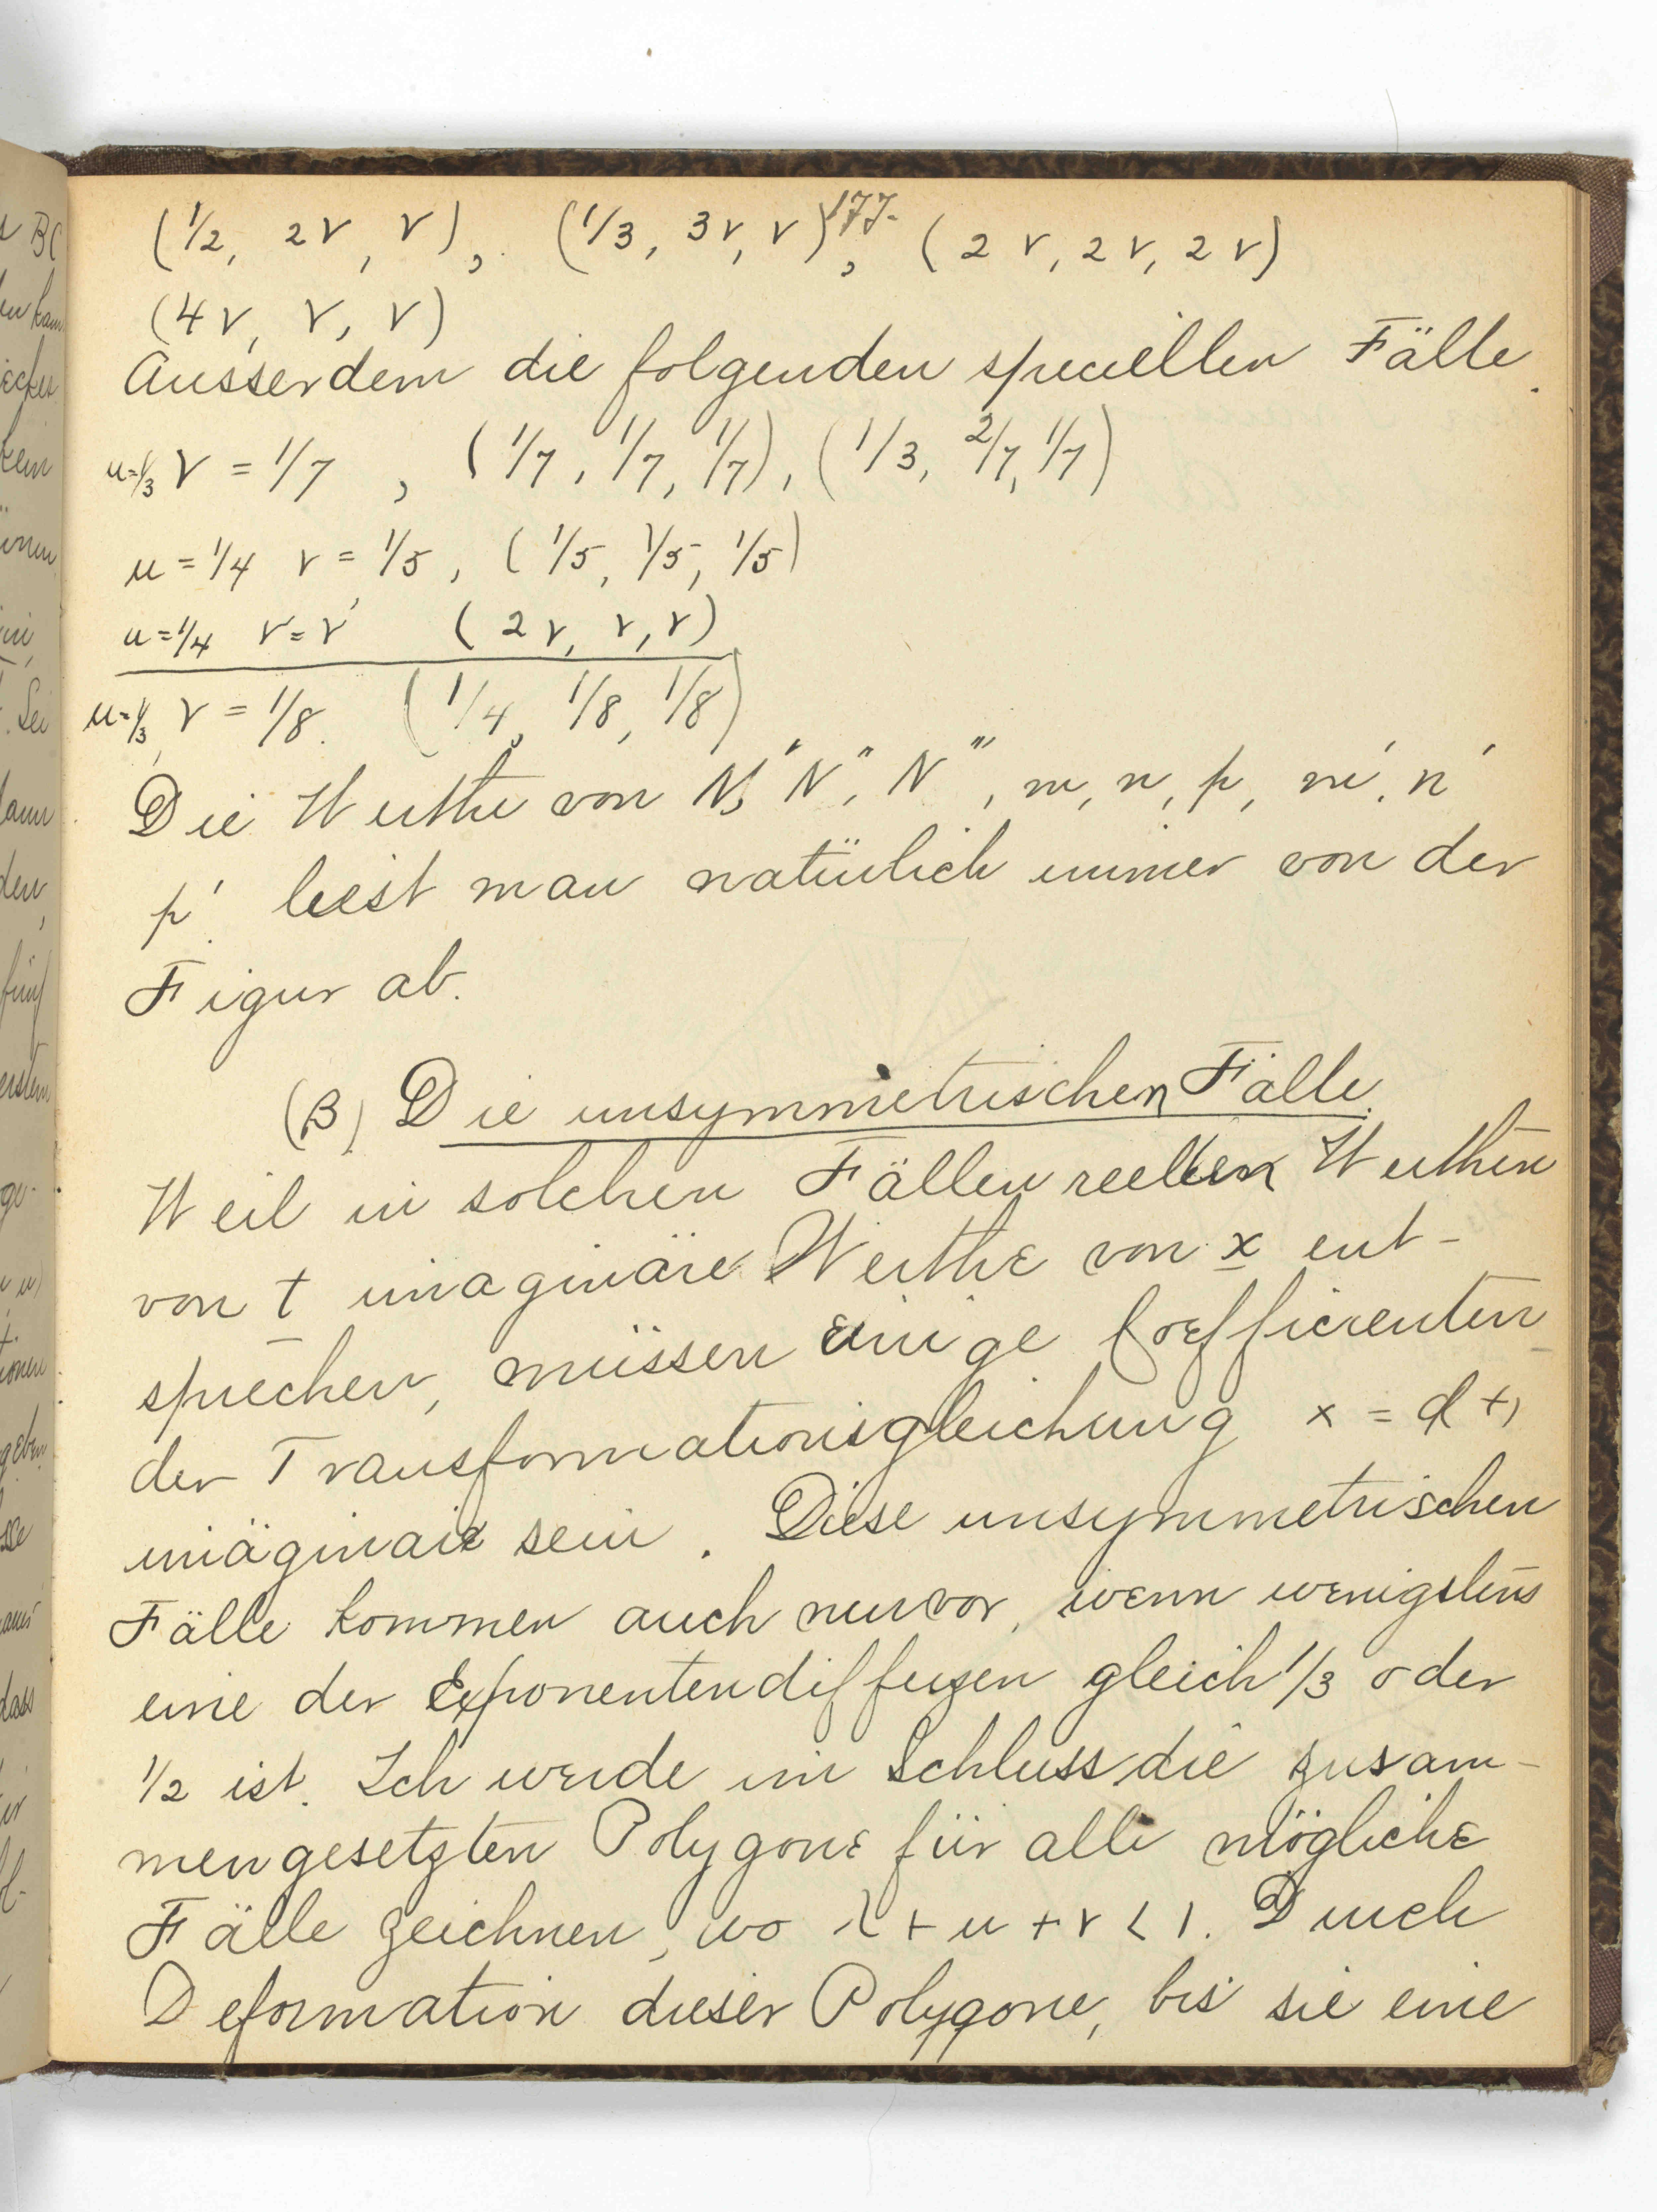 177.
(1/2, 2ν, ν), (1/3, 3ν, ν), (2ν, 2ν, 2ν)
(4ν, ν, ν)
Ausserdem die folgenden speciellen Fälle.
u=1/3 ν = 1/7, (1/7, 1/7, 1/7), (1/3, 2/7, 1/7)
u = 1/4 ν = 1/5, (1/5, 1/5, 1/5)
u = 1/4 ν = ν (2ν, ν, ν)
u=1/3, ν = 1/8. (1/4, 1/8, 1/8)
Die Werthe von N', N'', N''', m, n, p, m', n'
p' liest man natürlich immer von der
Figur ab.
(β) Die unsymmetrischen Fälle.
Weil in solchen Fällen reellen Werthen
von t imaginäre Werthe von x ent-
sprechen, müssen einige Coefficienten
der Transformationsgleichung x =
imäginair sein. Diese unsymmetrischen
Fälle kommen auch nur vor, wenn wenigstens
eine der Exponentendifferenzen gleich 1/3 oder
1/2 ist. Ich werde im Schluss die zusam-
mengesetzten Polygone für alle mögliche
Fälle zeichnen, wo λ + u + ν < 1. Durch
Deformation dieser Polygone, bis sie eine